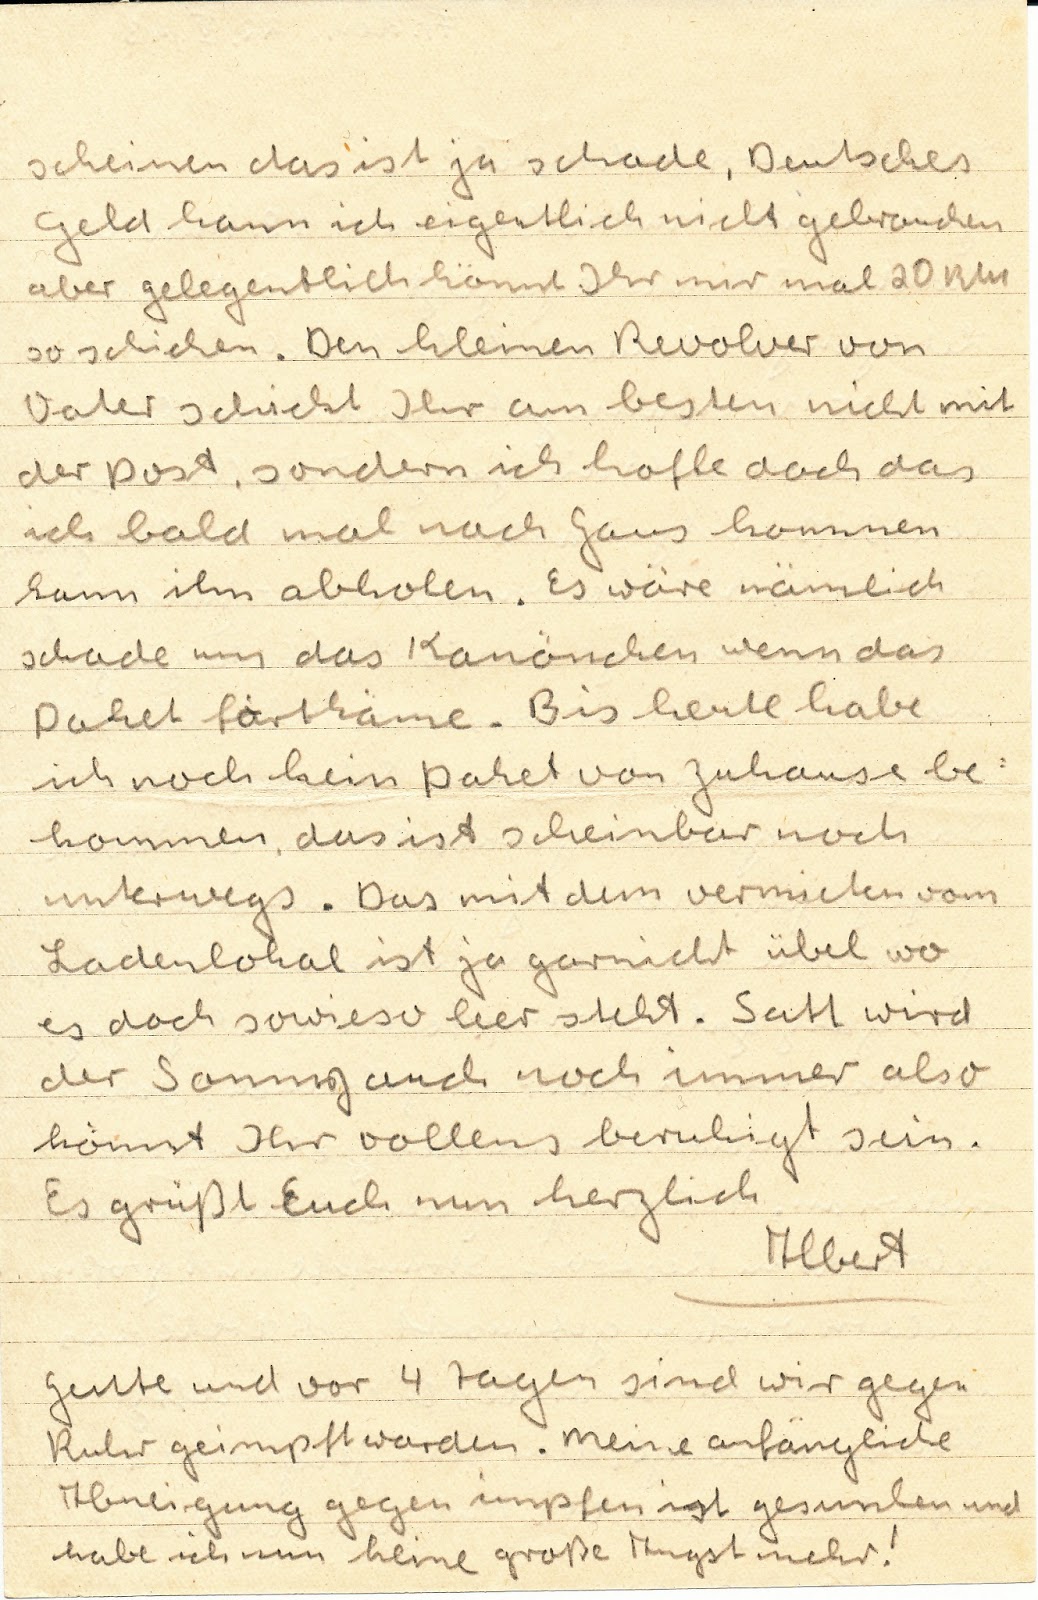 scheinen das ist ja schade, Deutsches
Geld kann ich eigentlich nicht gebrauchen
aber gelegentlich könnt Ihr mir mal 20 RM
so schicken. Den kleinen Revolver von
Vater schickt Ihr am besten nicht mit
der Post, sondern ich hoffe doch das
ich bald mal nach Haus kommen
kann ihn abholen. Es wäre nämlich
schade um das Kanönchen wenn das
Paket fortkäme. Bis heute habe
ich noch kein Paket von Zuhause be=
kommen, das ist scheinbar noch
unterwegs. Das mit dem vermieten vom
Ladenlokal ist ja garnicht übel wo
es doch sowieso leer steht. Satt wird
der auch noch immer also
könnt Ihr vollens beruhigt sein.
Es grüßt Euch nun herzlich
Albert
Heute und vor 4 Tagen sind wir gegen
Ruhr geimpft worden. Meine anfängliche
Abneigung gegen impfen ist gesunken und
habe ich nun keine große Angst mehr!